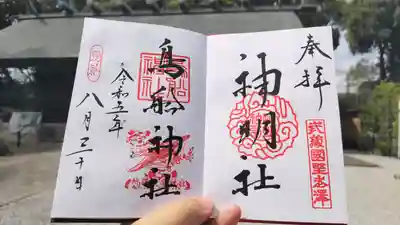 奉拝
神明社
武蔵國野老澤
鳥船神社
令和五年
八月二十日